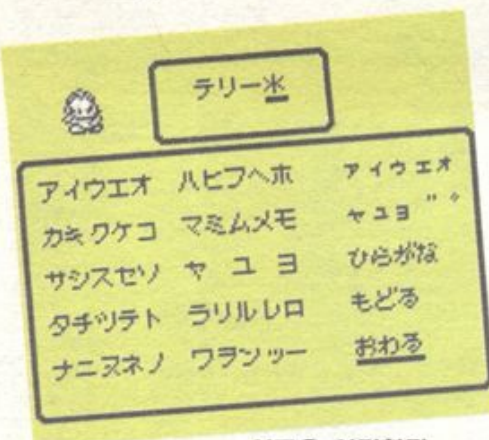 テリー＊
アイウエオ ハヒフヘホ ァィゥェォ
カキクケコ マミムメモ ャュョ゛゜
サシスセソ ヤ ユ ヨ ひらがな
タチツテト ラリルレロ もどる
ナニヌネノ ワヲンッー おわる